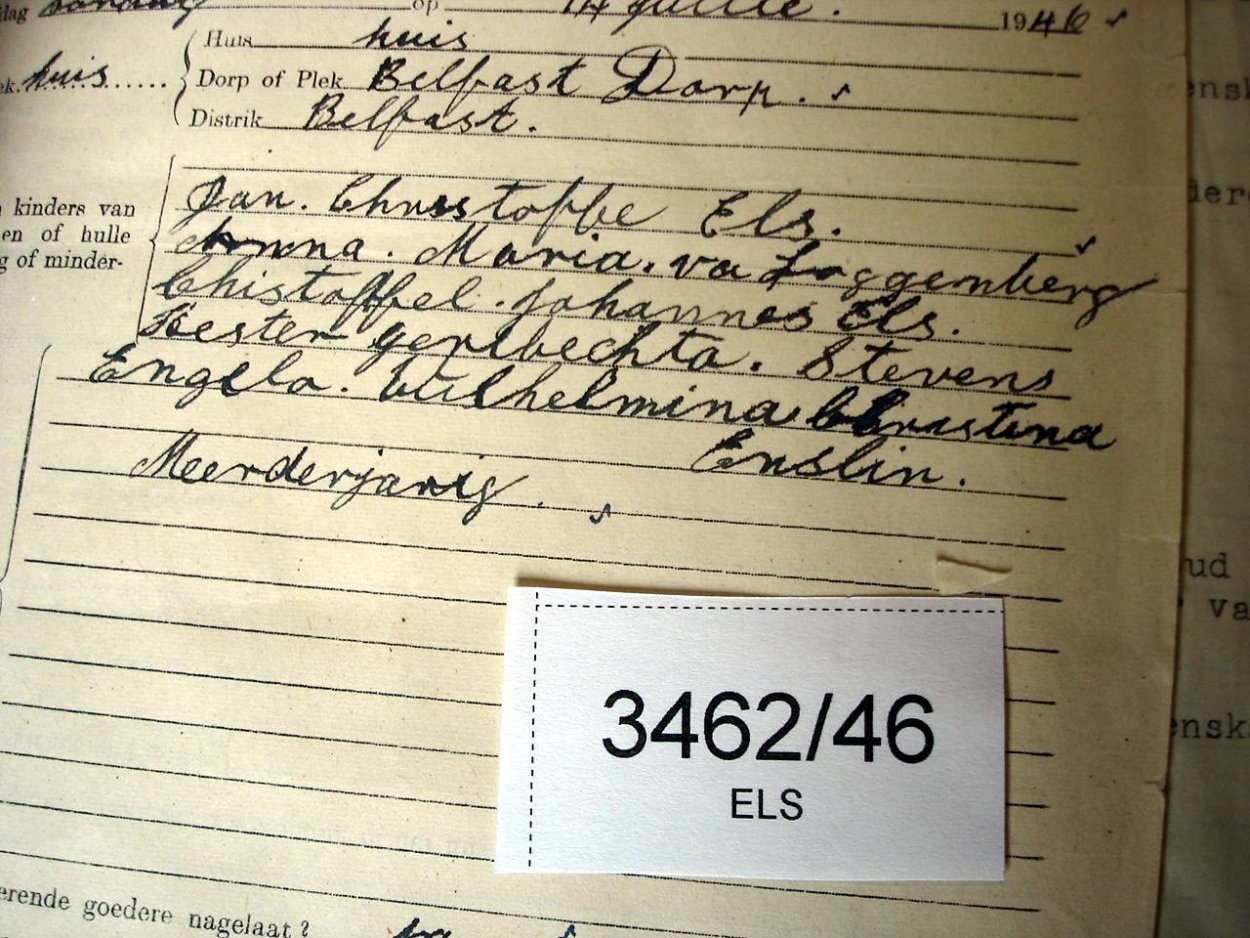 dag Sondag op 14 Julie. 1946
Huis huis
ek huis { Dorp of Plek Belfast Dorp.
Distrik Belfast.
ensk
der
kinders van
en of hulle
g of minder-
Jan. Christoffe Els.
Anna. Maria. va Loggenberg
Chistoffel. Johannes Els.
Hester gertbechta. Stevens
Engela. Wilhelmina Christina
Enslin.
Meerderjarig.
ud
va
ensk
3462/46
ELS
erende goedere nagelaat?